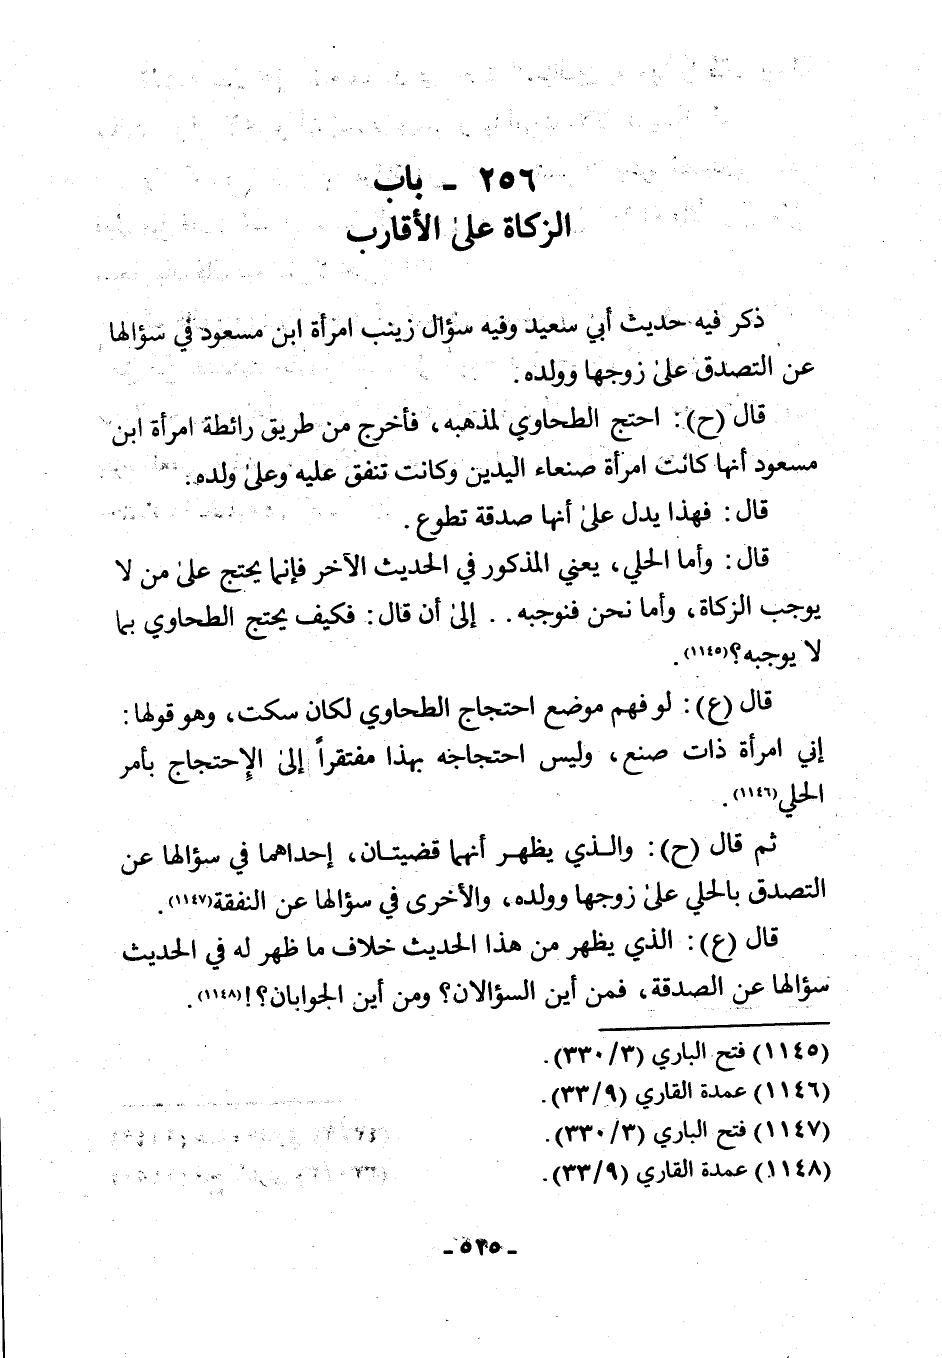 ٢٥٦ - باب
الزكاة علىٰ الأقارب
ذكر فيه حديث أبي سعيد وفيه سؤال زينب امرأة ابن مسعود في سؤالها
عن التصدق علىٰ زوجها وولده.
قال (ح): احتج الطحاوي لمذهبه، فأخرج من طريق رائطة امرأة ابن
مسعود أنها كانت امرأة صنعاء اليدين وكانت تنفق عليه وعلىٰ ولده.
قال: فهذا يدل علىٰ أنها صدقة تطوع.
قال: وأما الحلي، يعني المذكور في الحديث الآخر فإنما يحتج علىٰ من لا
يوجب الزكاة، وأما نحن فنوجبه. . إلىٰ أن قال: فكيف يحتج الطحاوي بما
لا يوجبه؟(١١٤٥).
قال (ع): لو فهم موضع احتجاج الطحاوي لكان سكت، وهو قولها:
إني امرأة ذات صنع، وليس احتجاجه بهذا مفتقراً إلىٰ الإحتجاج بأمر
الحلي(١١٤٦).
ثم قال (ح): والذي يظهر أنهما قضيتان، إحداهما في سؤالها عن
التصدق بالحلي علىٰ زوجها وولده، والأخرى في سؤالها عن النفقة(١١٤٧).
قال (ع): الذي يظهر من هذا الحديث خلاف ما ظهر له في الحديث
سؤالها عن الصدقة، فمن أين السؤالان؟ ومن أين الجوابان؟!(١١٤٨).
(١١٤٥) فتح الباري (٣/ ٣٣٠).
(١١٤٦) عمدة القاري (٩/ ٣٣).
(١١٤٧) فتح الباري (٣/ ٣٣٠).
(١١٤٨) عمدة القاري (٩/ ٣٣).
- ٥٢٥ -